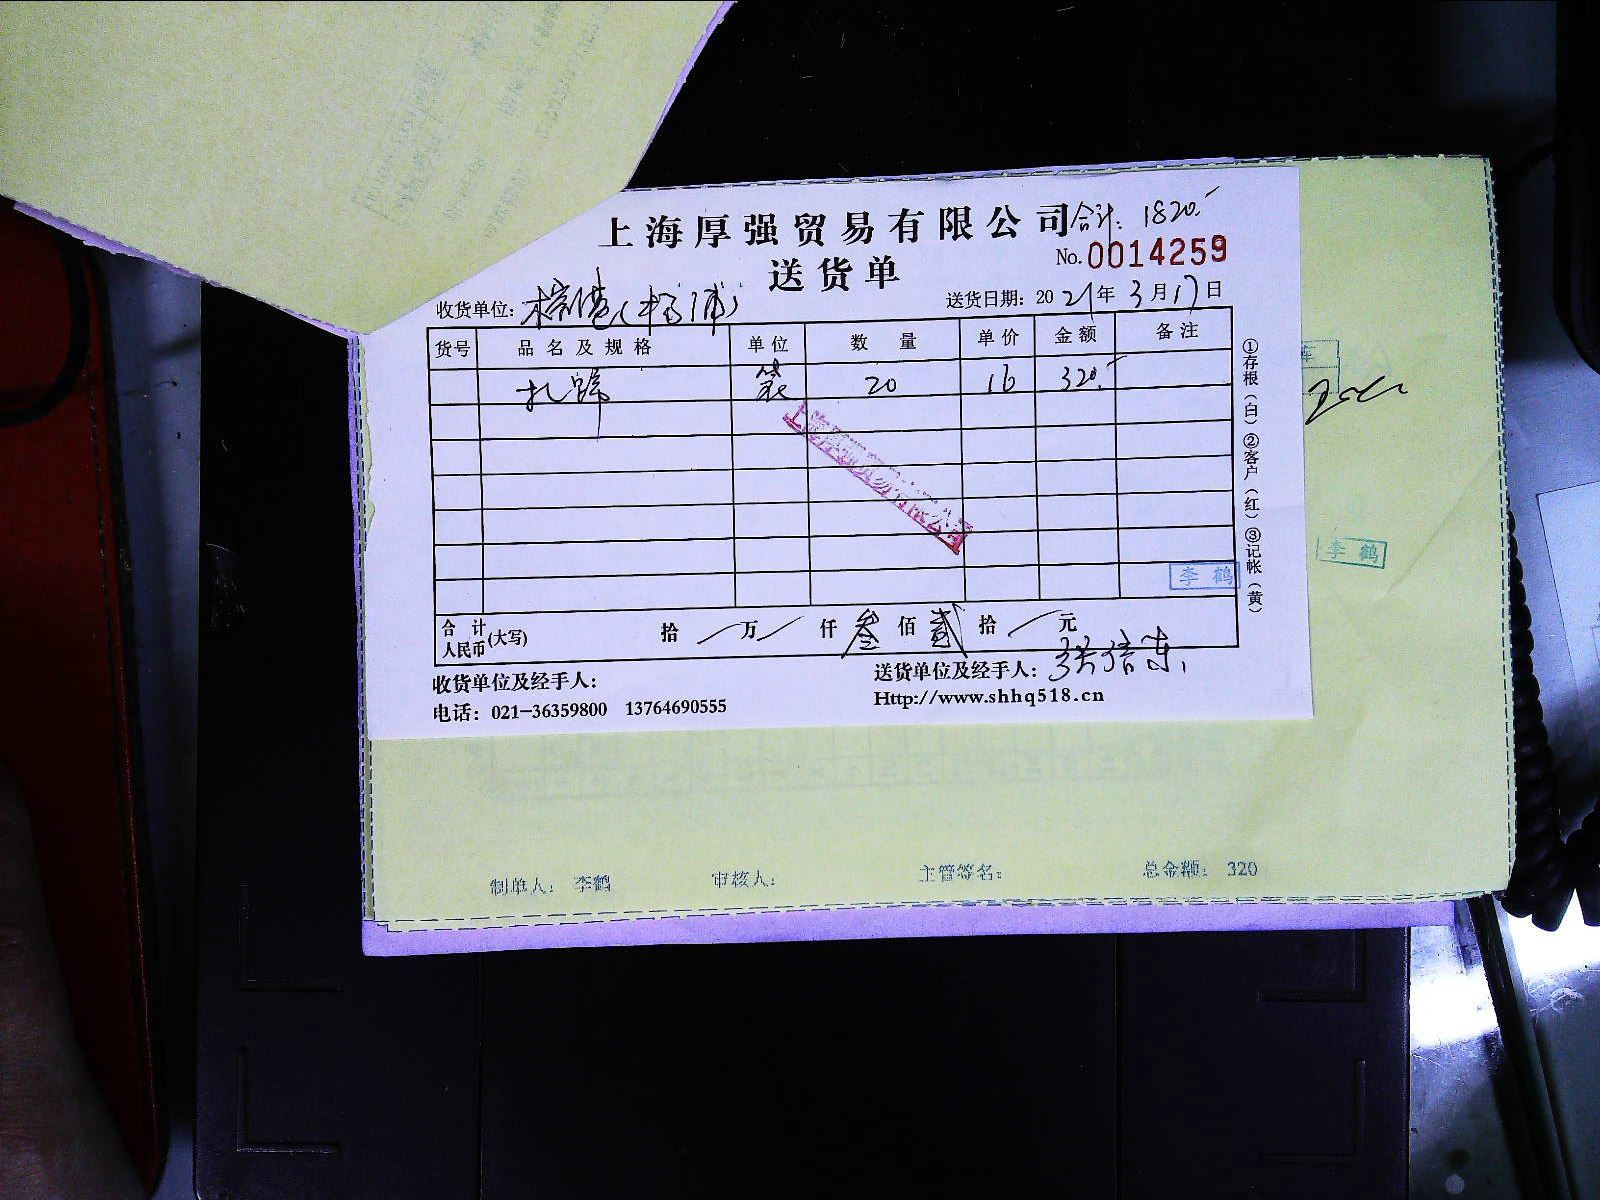 上海厚强贸易有限公司 合计:1820.-
No.0014259
送货单
收货单位: 送货日期:2021年3月17日
货号 品名及规格 单位 数量 单价 金额 备注
扎蹄 袋 20 16 320.-
上海厚强贸易有限公司
李鹤
李鹤
合计人民币(大写) 拾 万 仟 叁 佰 贰 拾 元
收货单位及经手人: 送货单位及经手人:
电话:021-36359800 13764690555 Http://www.shhq518.cn
①存根(白)②客户(红)③记帐(黄)
制单人: 李鹤 审核人: 主管签名: 总金额: 320